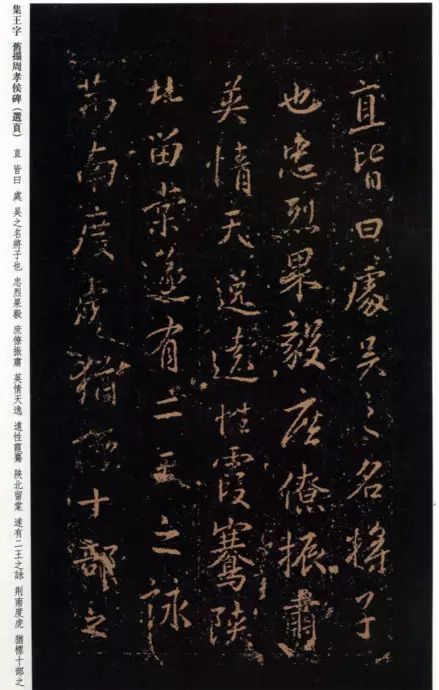 集王字 舊搨周孝侯碑（選頁） 直 皆曰 處 吴之名將子也 忠烈果毅 庶僚振肅 英情天逸 遠性霞騫 陝北留棠 遂有二王之詠 荆南度虎 猶標十部之
直皆曰處吴之名將子
也忠烈果毅庶僚振肅
英情天逸遠性霞騫陝
北留棠遂有二王之詠
荆南度虎猶標十部之